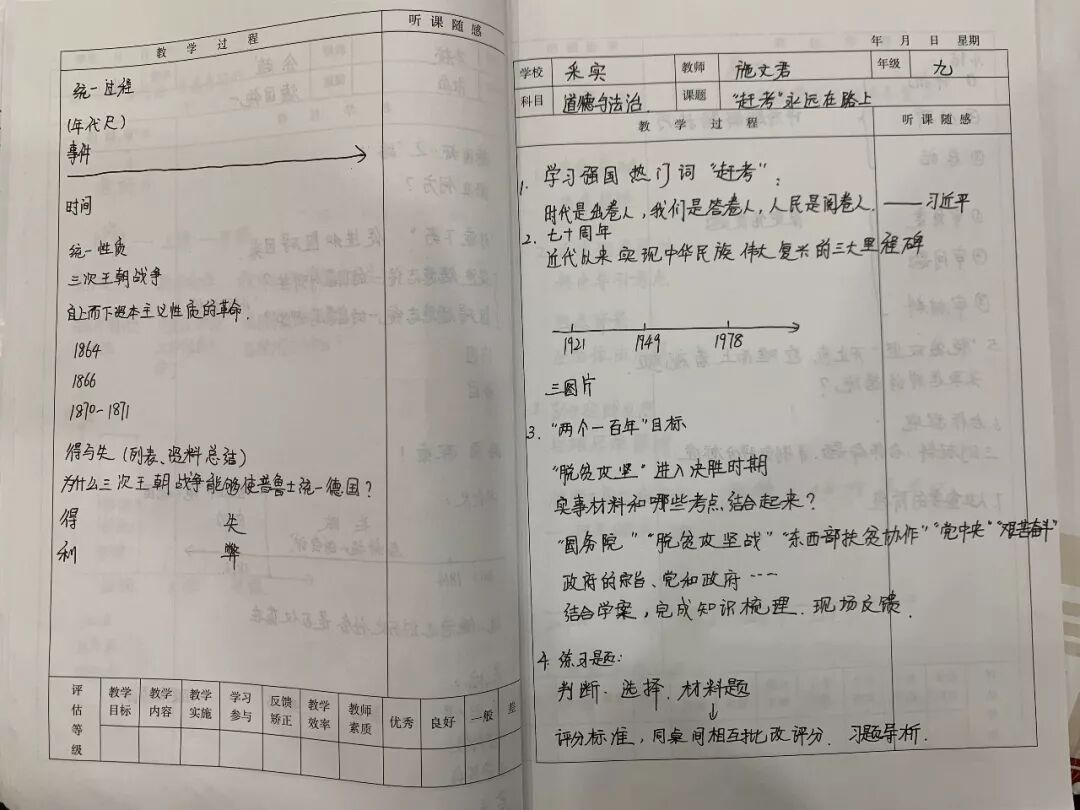 教学过程 听课随感
统一过程
(年代尺)
事件
时间
统一性质
三次王朝战争
自上而下资本主义性质的革命.
1864
1866
1870-1871
得与失 (列表、资料总结)
为什么三次王朝战争能够使普鲁士统一德国?
得 失
利 弊
评估等级 教学目标 教学内容 教学实施 学习参与 反馈矫正 教学效率 教师素质 优秀 良好 一般 差
年 月 日 星期
学校 采实 教师 施文君 年级 九
科目 道德与法治 课题 “赶考”永远在路上
教学过程 听课随感
1. 学习强国 热门词 “赶考”:
时代是出卷人,我们是答卷人,人民是阅卷人. ——习近平
2. 七十周年
近代以来 实现中华民族伟大复兴的三大里程碑
1921 1949 1978
三图片
3. “两个一百年”目标
“脱贫攻坚”进入决胜时期
实事材料和哪些考点结合起来?
“国务院”“脱贫攻坚战”“东西部扶贫协作”“党中央”“艰苦奋斗”
政府的宗旨、党和政府……
结合学案,完成知识梳理. 现场反馈.
4. 练习题:
判断. 选择. 材料题
↓
评分标准,同桌间相互批改评分. 习题导析.